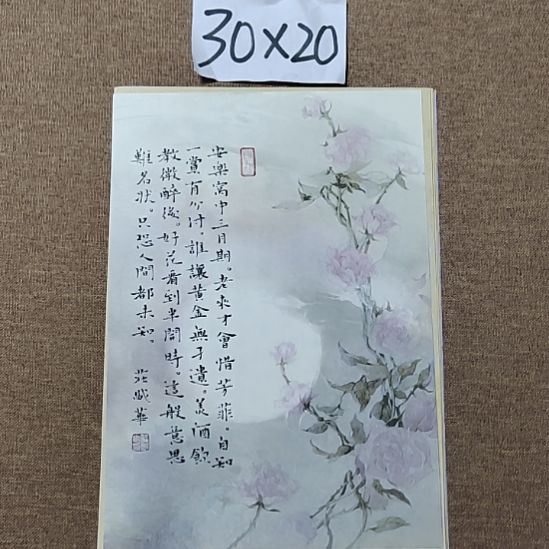 30X20
安樂窩中三月期。老來才會惜芳菲。自知
一賞有分付。誰讓黃金無孑遺。美酒飲
教微醉後。好花看到半開時。這般意思
難名狀。只恐人間都未知。